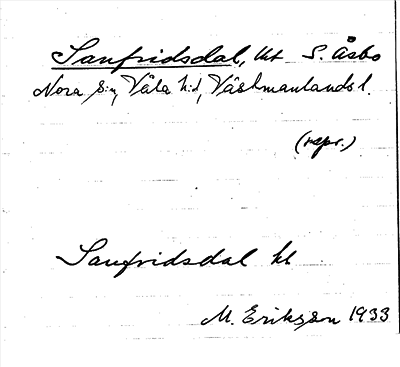 Sanfridsdal, ht S. Åsbo
Nora sn, Våla hd, Västmanlands l.
(repr.)
Sanfridsdal ht
M. Eriksson 1933